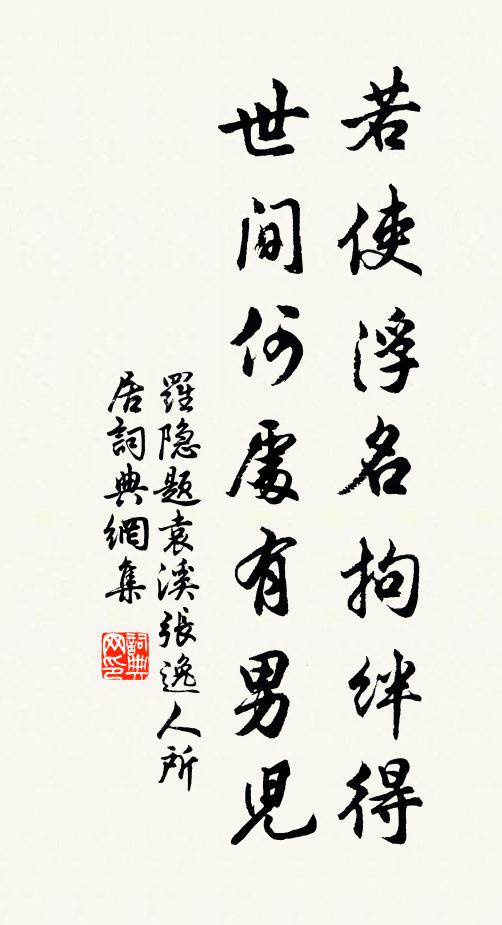 若使浮名拘絆得
世間何處有男兒
羅隐题袁溪張逸人所
居詞典網集
詞典
网印